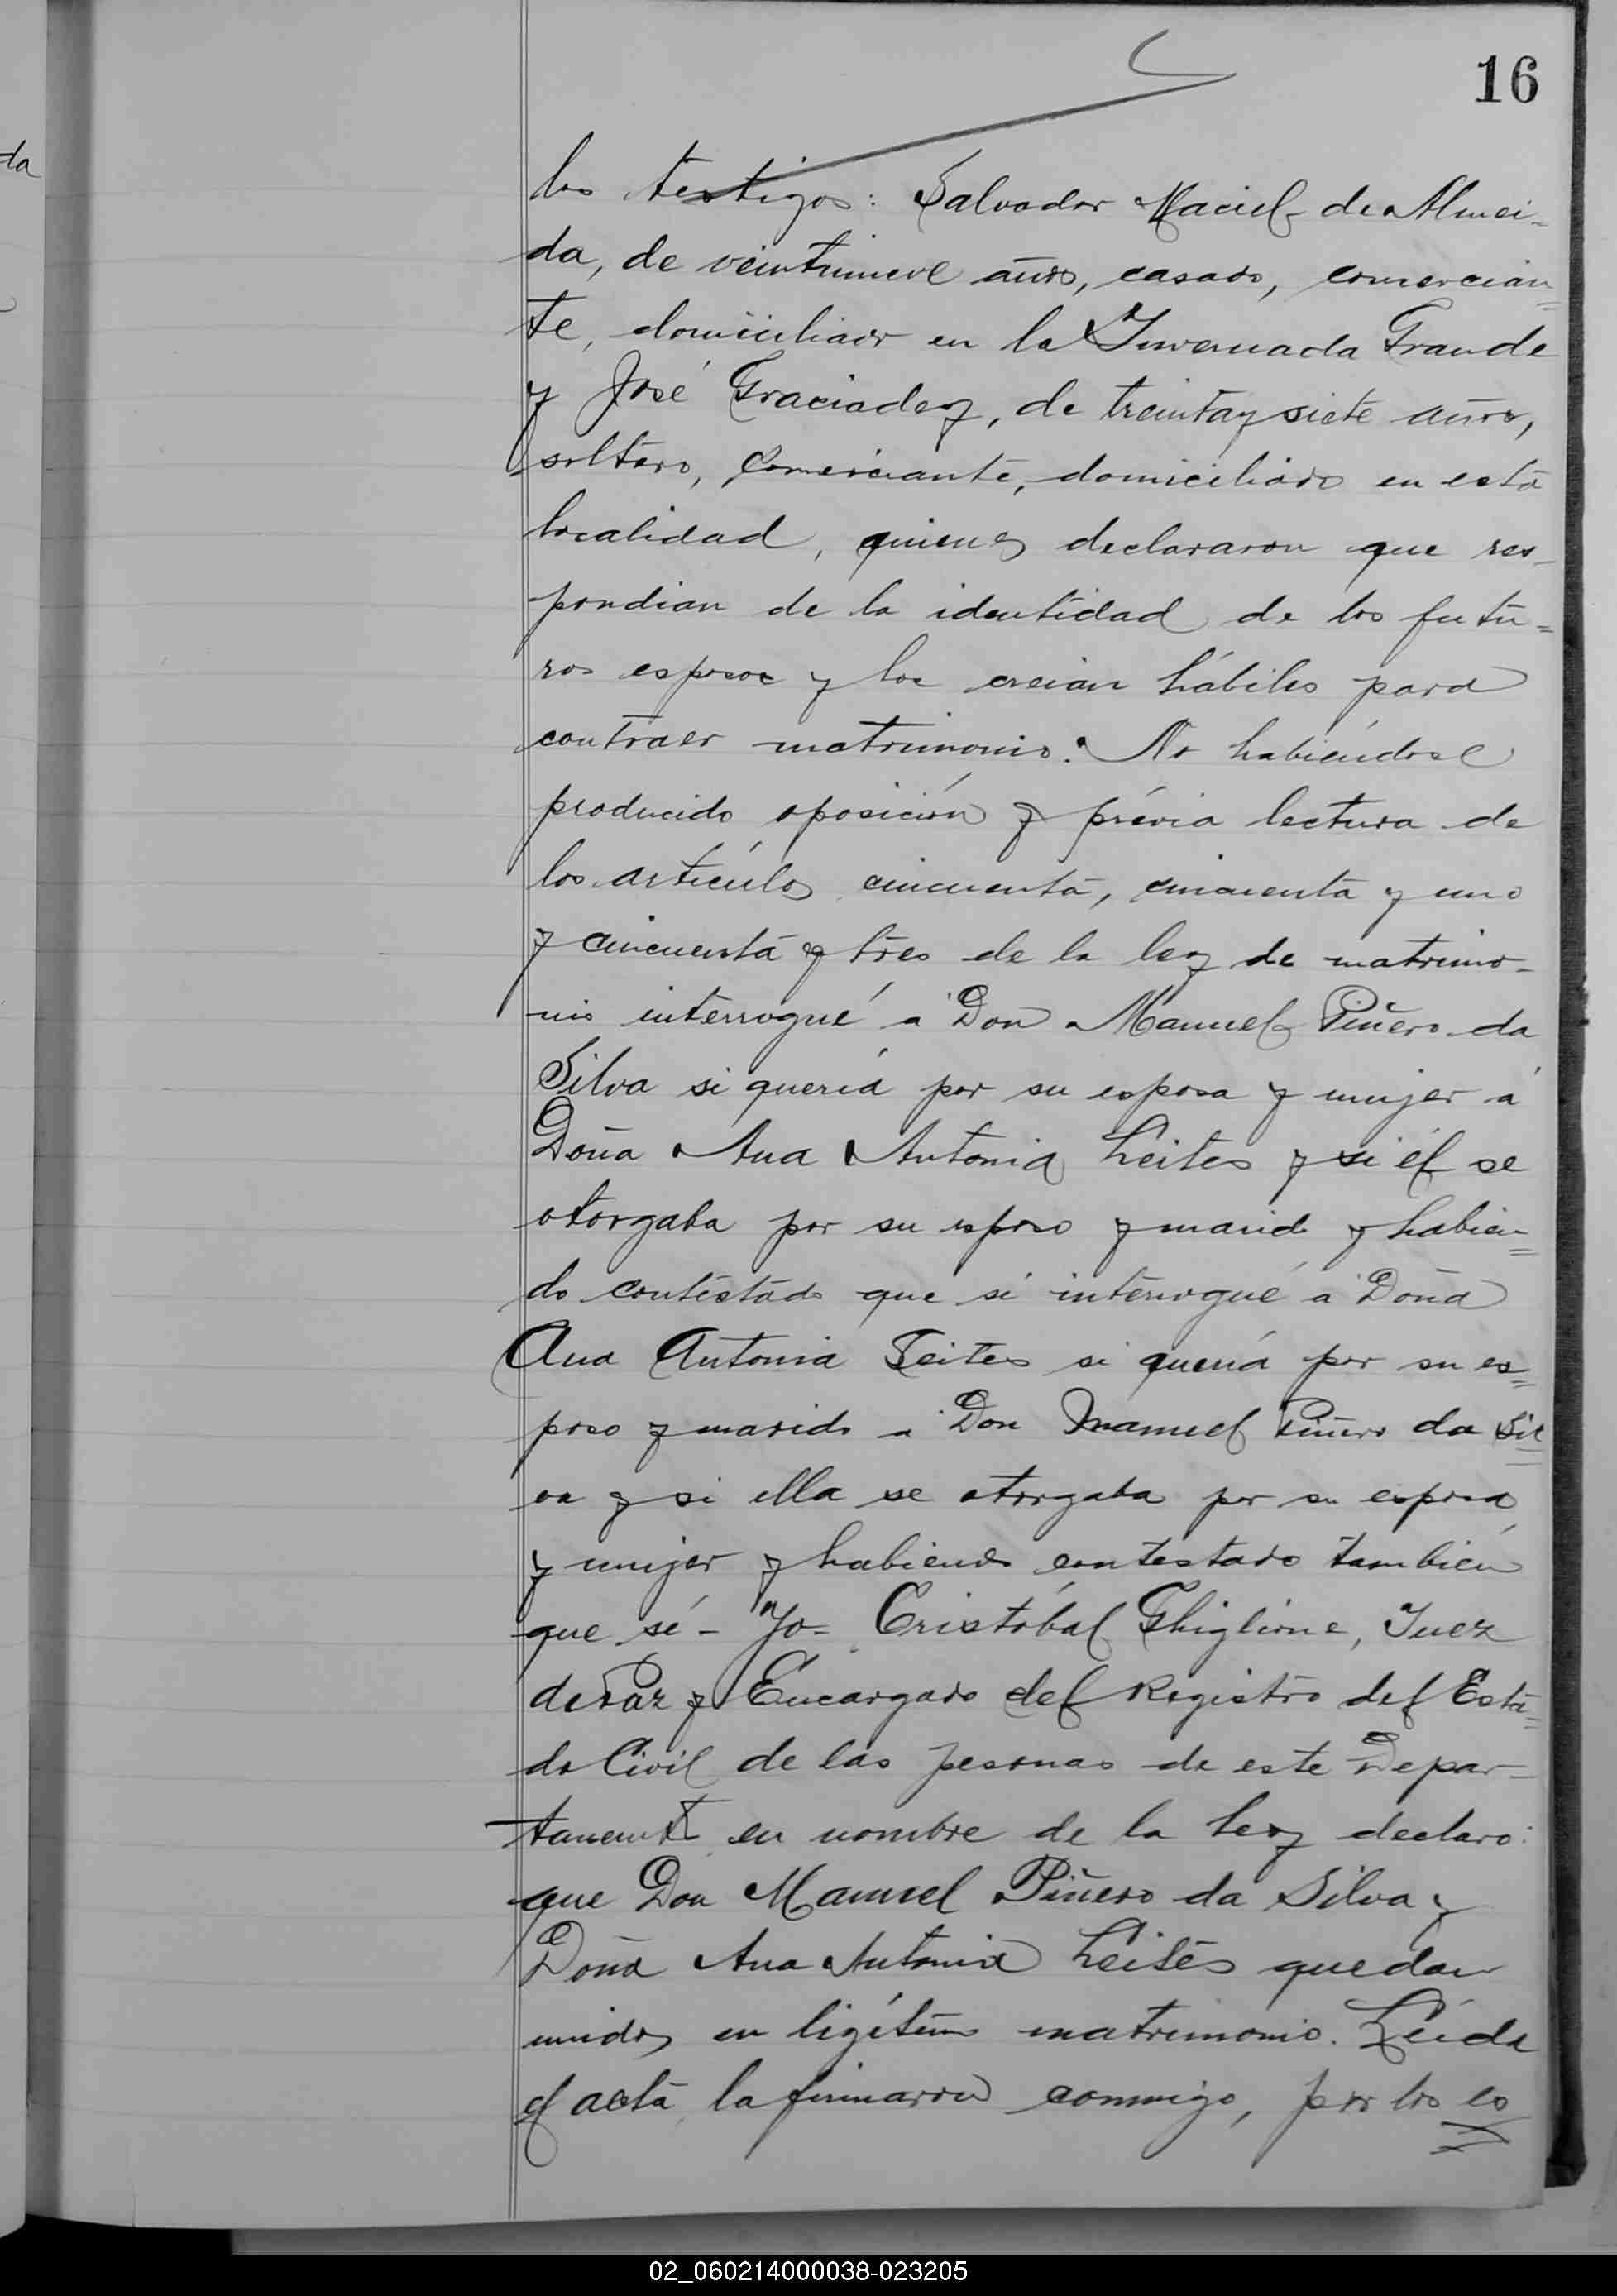 da
16
los testigos: Salvador Maciel de Almei-
da, de veintinueve años, casado, comercian=
te, domiciliado en la Invernada Grande
y José Graciadez, de treinta y siete años,
soltero, comerciante, domiciliado en esta
localidad, quienes declararon que res-
pondian de la identidad de los futu=
ros esposos y los creian hábiles para
contraer matrimonio. No habiéndose
producido oposición y prévia lectura de
los artículos cincuenta, cincuenta y uno
y cincuenta y tres de la ley de matrimo-
nio interrogué a Don Manuel Piñero da
Silva si quería por su esposa y mujer á
Doña Ana Antonia Leites y si él se
otorgaba por su esposo y marido y habien=
do contestado que si interrogué a Doña
Ana Antonia Leites si quería por su es=
poso y marido a Don Manuel Piñero da Sil=
va y si ella se otorgaba por su esposa
y mujer y habiendo contestado también
que sé - Yo - Cristóbal Ghiglione, Juez
de Paz y Encargado del Registro del Esta=
do Civil de las pesonas de este Depar-
tamento en nombre de la Ley declaro:
que Don Manuel Piñero da Silva y
Doña Ana Antonia Leites quedan
unidos en ligítimo matrimonio. Leída
el acta la firmaron conmigo, por los es
02_060214000038-023205